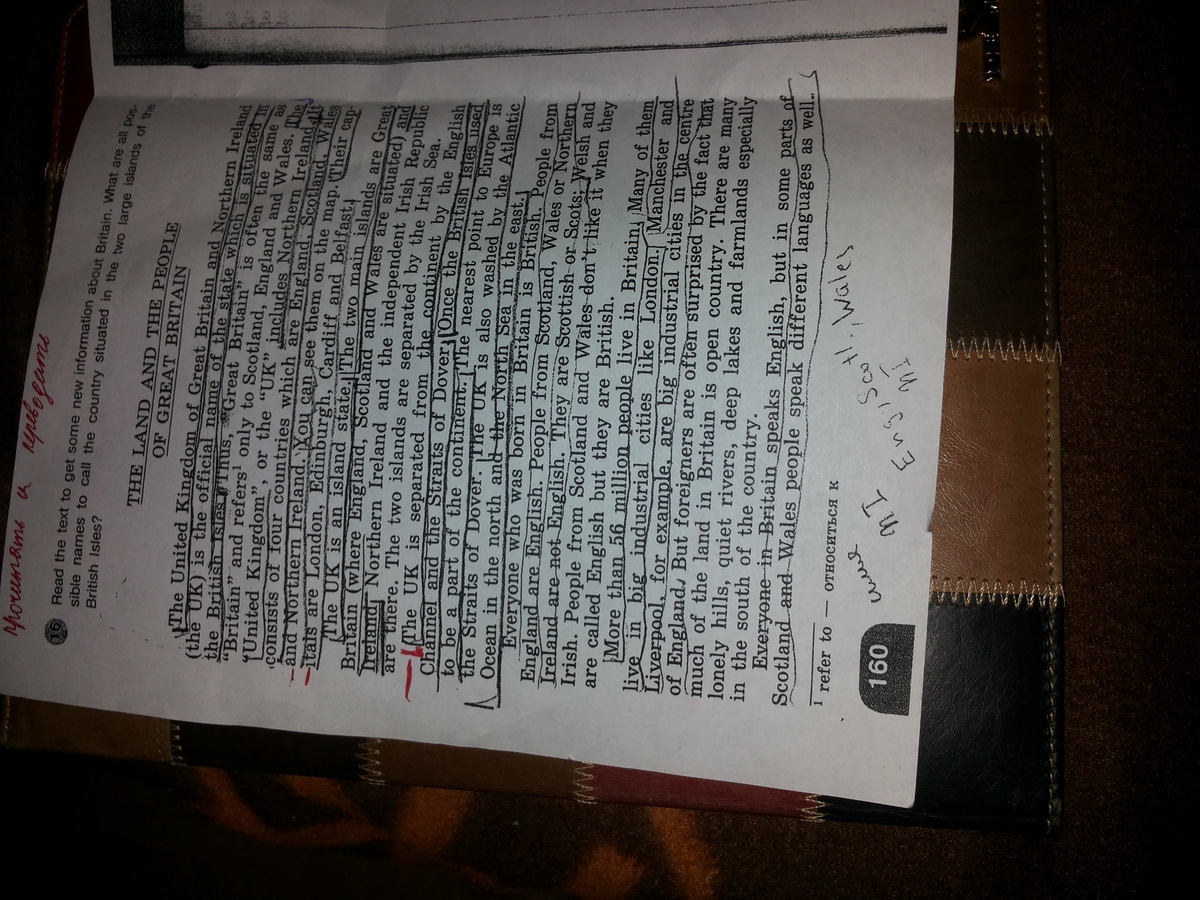 прочитать и переводить
16 Read the text to get some new information about Britain. What are all pos-
sible names to call the country situated in the two large islands of the
British Isles?
THE LAND AND THE PEOPLE
OF GREAT BRITAIN
The United Kingdom of Great Britain and Northern Ireland
(the UK) is the official name of the state which is situated in
the British Isles. Thus, "Great Britain" is often the same as
"Britain" and refers¹ only to Scotland, England and Wales. The
"United Kingdom", or the "UK" includes Northern Ireland. It
consists of four countries which are England, Scotland, Wales
and Northern Ireland. You can see them on the map. Their cap-
itals are London, Edinburgh, Cardiff and Belfast.
The UK is an island state. The two main islands are Great
Britain (where England, Scotland and Wales are situated) and
Ireland. Northern Ireland and the independent Irish Republic
are there. The two islands are separated by the Irish Sea.
The UK is separated from the continent by the English
Channel and the Straits of Dover. Once the British Isles used
to be a part of the continent. The nearest point to Europe is
the Straits of Dover. The UK is also washed by the Atlantic
Ocean in the north and the North Sea in the east.
Everyone who was born in Britain is British. People from
England are English. People from Scotland, Wales or Northern
Ireland are not English. They are Scottish or Scots; Welsh and
Irish. People from Scotland and Wales don't like it when they
are called English but they are British.
More than 56 million people live in Britain. Many of them
live in big industrial cities like London. Manchester and
Liverpool, for example, are big industrial cities in the centre
of England. But foreigners are often surprised by the fact that
much of the land in Britain is open country. There are many
lonely hills, quiet rivers, deep lakes and farmlands especially
in the south of the country.
Everyone in Britain speaks English, but in some parts of
Scotland and Wales people speak different languages as well.
1 refer to — относиться к
160
NI Engl, Scotl, Wales
NI